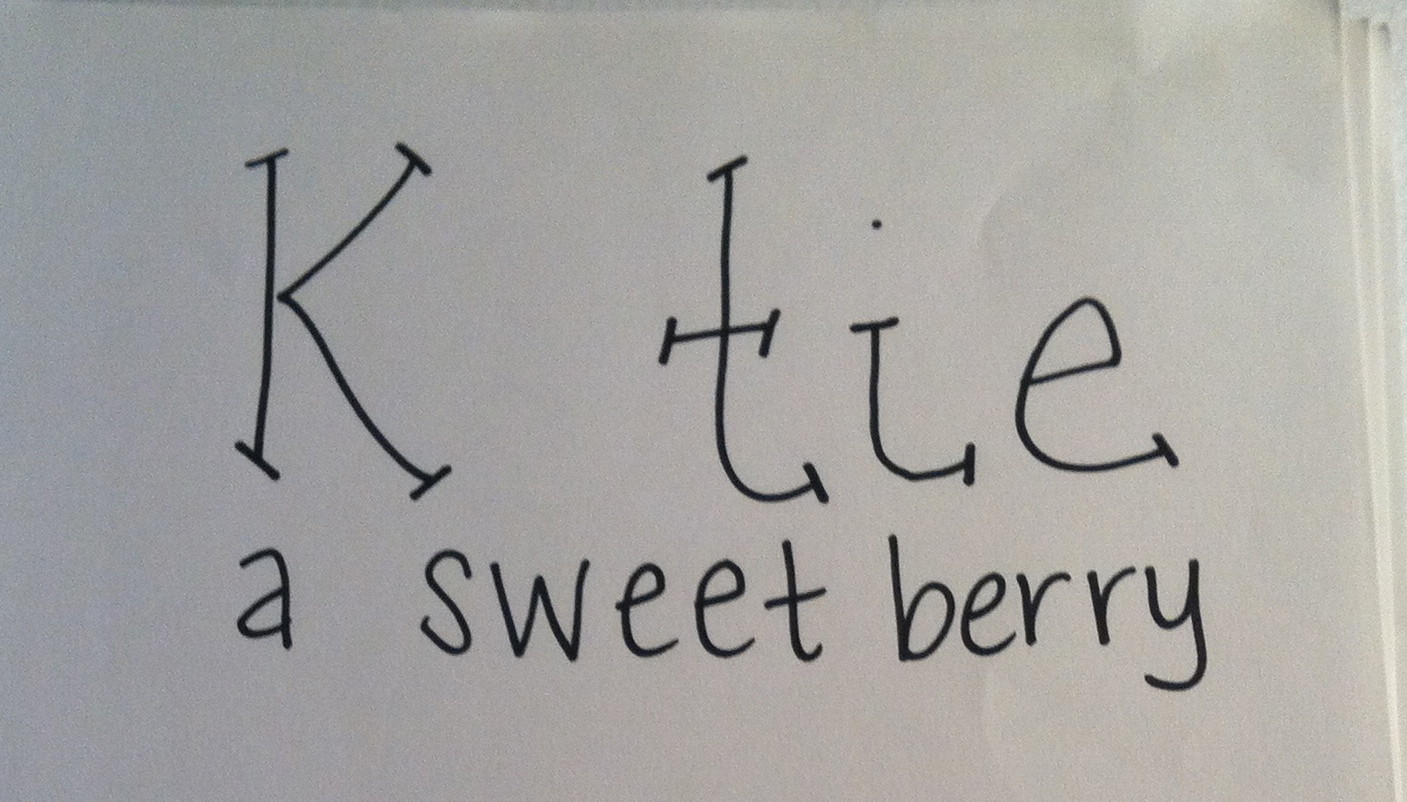 K tie
a sweet berry